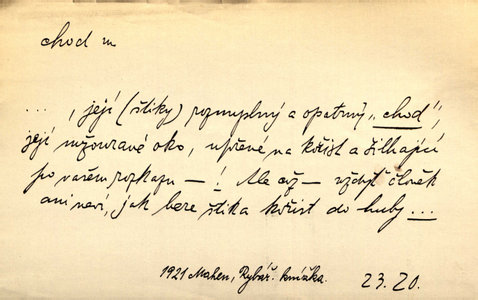 chod m
... , její (štiky) rozmyslný a opatrný „chod",
její mžouravé oko, upřené na kořist a žilhající
po vašem rozkazu – ! Ale což – vždyť člověk
ani neví, jak bere štika kořist do huby ...
1921 Mahen, Rybář. knížka. 23.20.